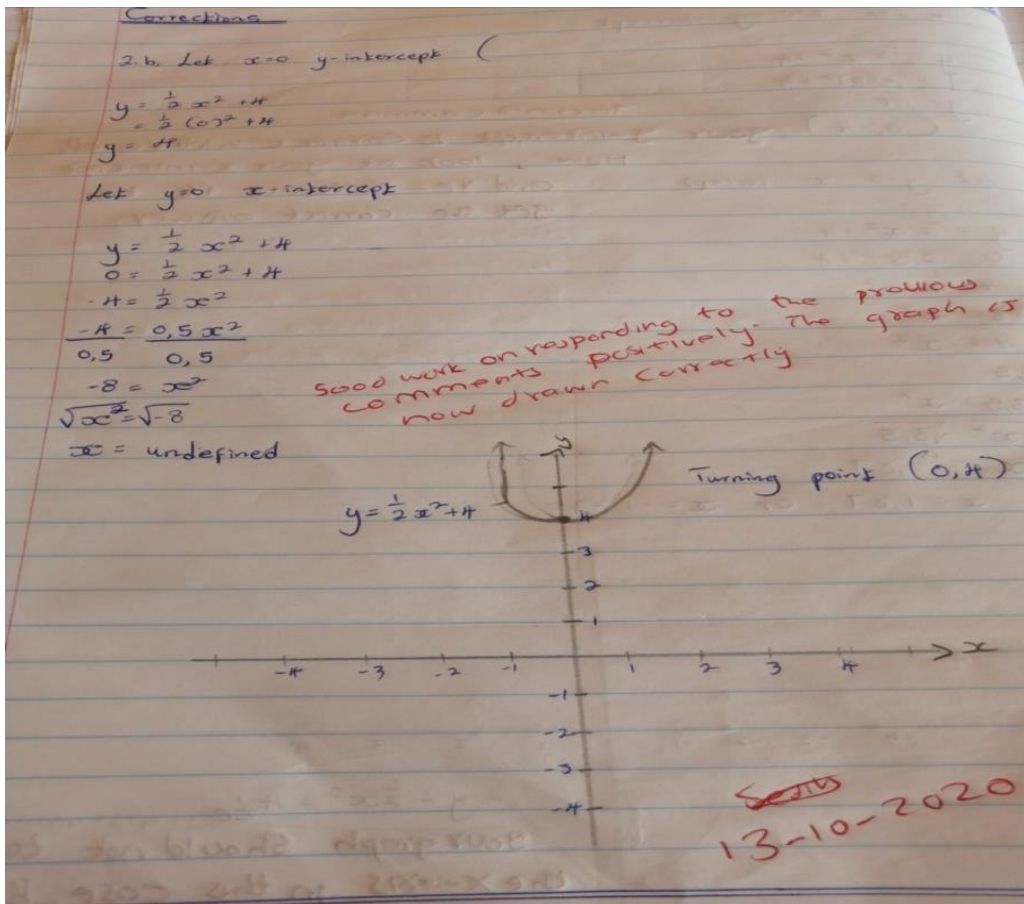 Corrections
2.b. Let x=0 y-intercept (
y = ½ x² + 4
= ½ (0)² + 4
y = 4
Let y=0 x-intercept
y = ½ x² + 4
0 = ½ x² + 4
-4 = ½ x²
-4 = 0,5x²
0,5 0,5
-8 = x²
√x² = √-8
x = undefined
Good work on responding to the previous
comments positively. The graph is
now drawn correctly
y
Turning point (0,4)
y = ½ x² + 4
4
3
2
1
-4 -3 -2 -1 1 2 3 4 x
-1
-2
-3
-4
13-10-2020